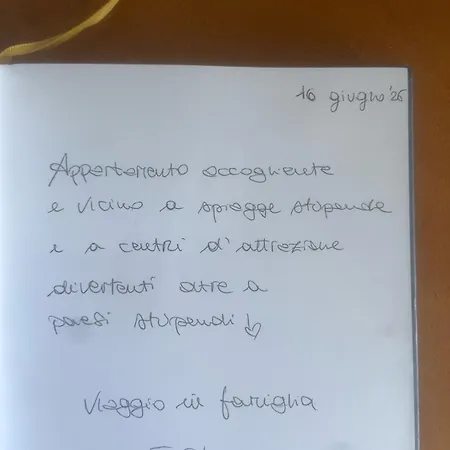 16 giugno '25
Appartamento accogliente
e vicino a spiagge stupende
e a centri d'attrazione
divertenti oltre a
paesi stupendi
Viaggio in famiglia